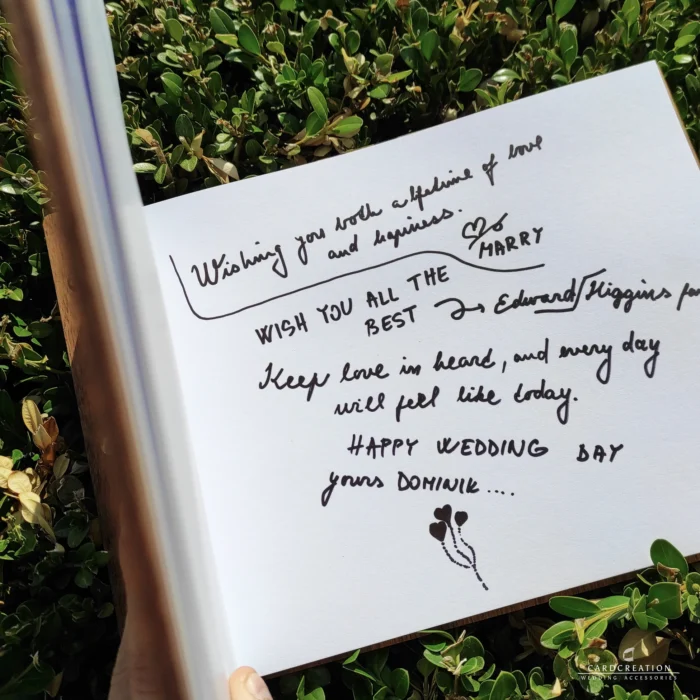 Wishing you both a lifetime of love
and hapiness.
MARRY
WISH YOU ALL THE
BEST Edward Higgins
Keep love in heard, and every day
will feel like today.
HAPPY WEDDING DAY
yours DOMINIK....
CARDCREATION
WEDDING ACCESSORIES